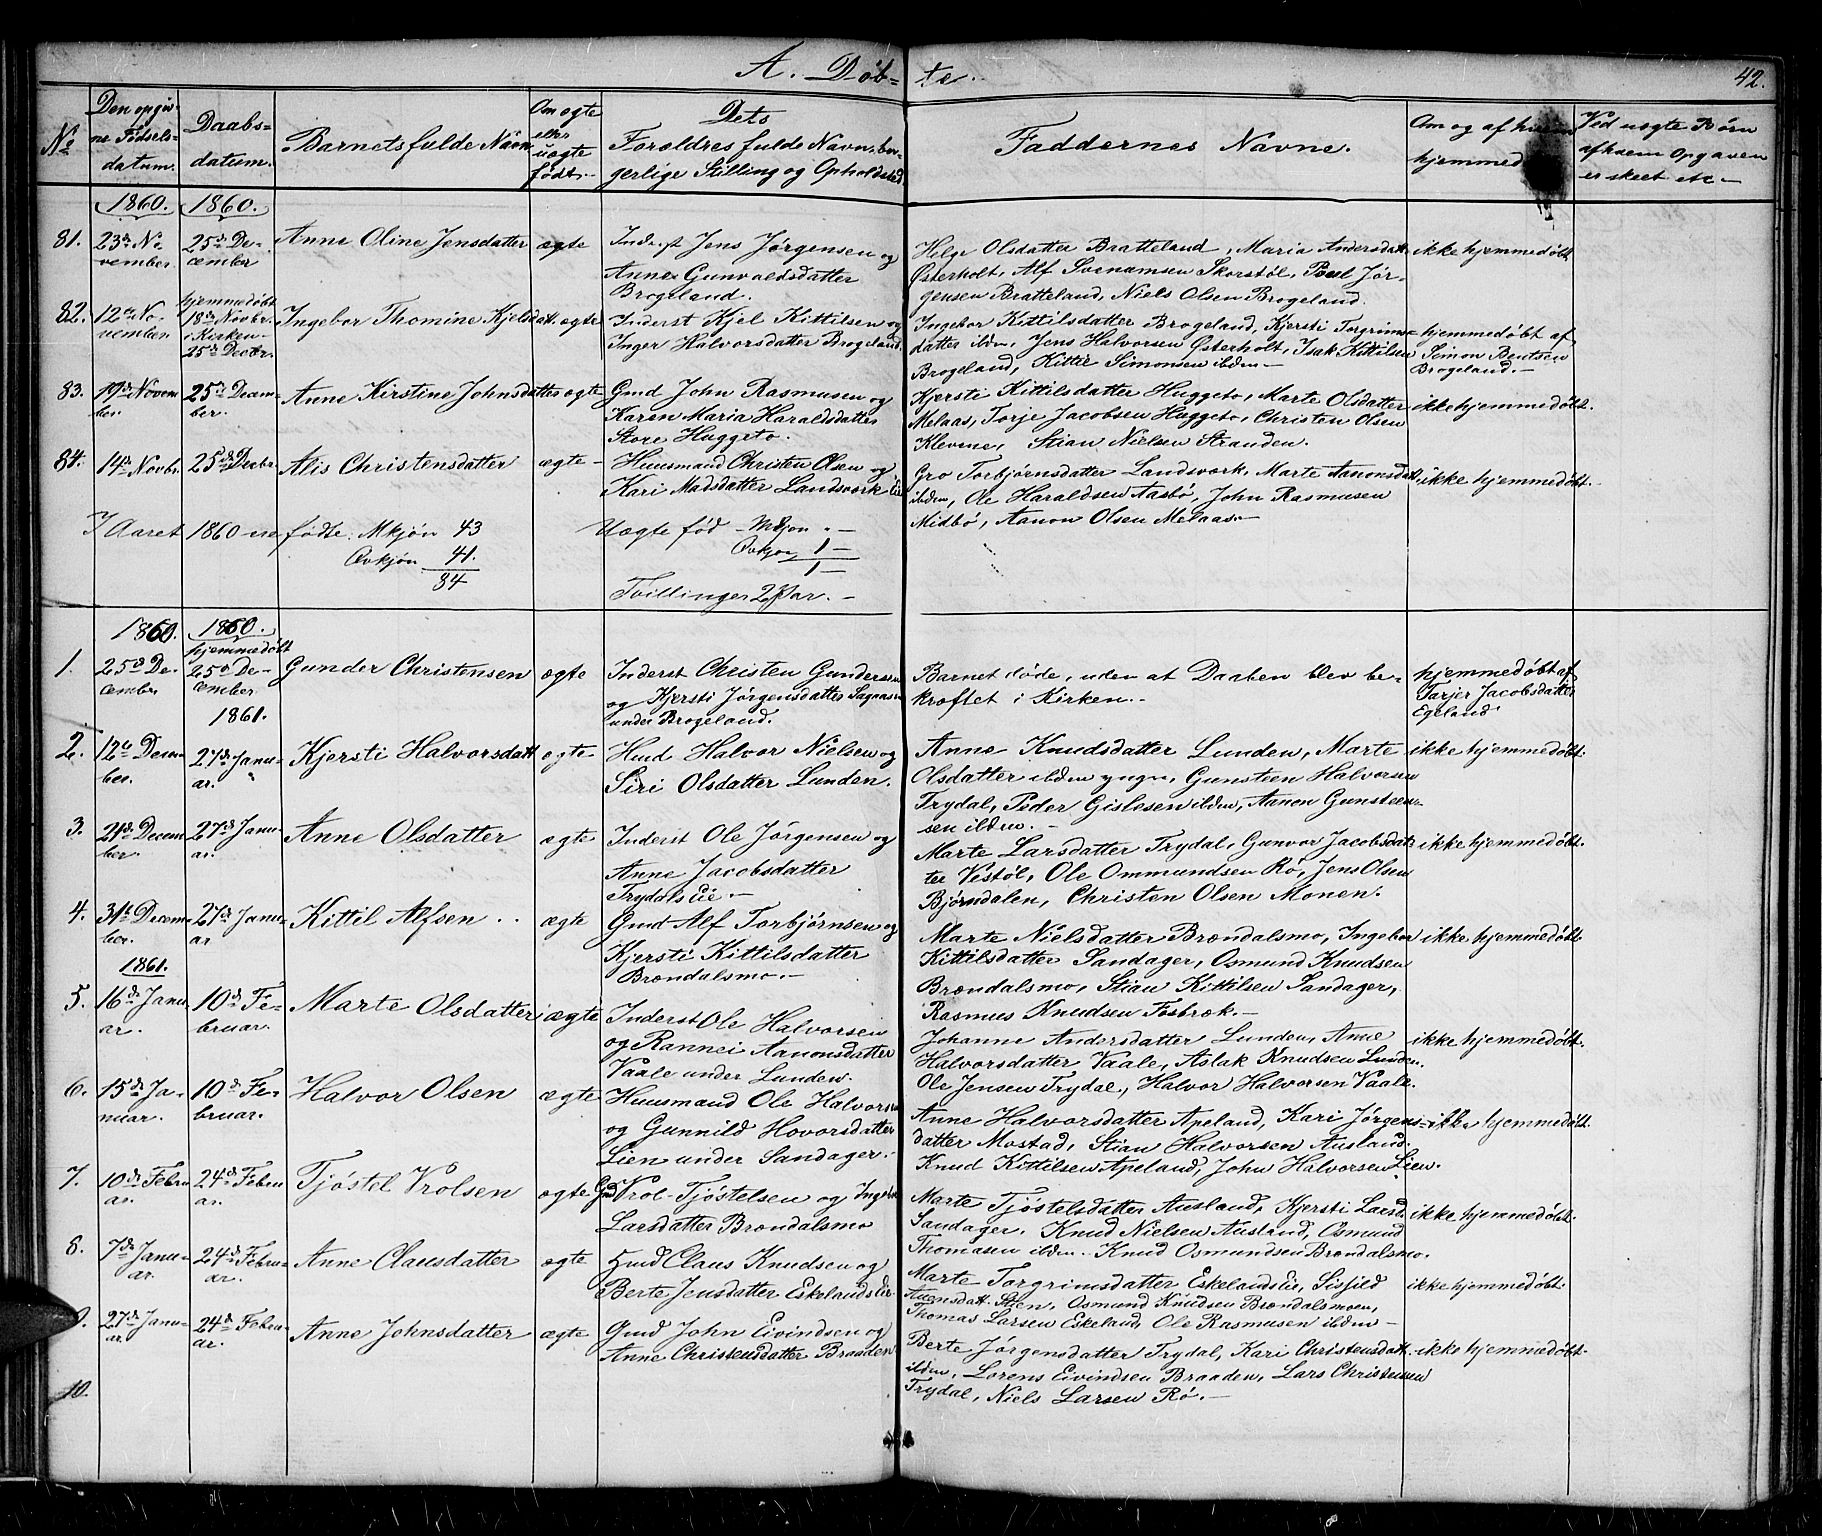 A. Døb=te.
42.
No
Den opgiv-
ne Fødsels-
datum.
Daabs=
datum.
Barnets fulde Navn
Om ægte
eller
uægte
født.-
Dets
Forældres fulde Navn, bor-
gerlige Stilling og Opholdssted
Faddernes Navne.
Om og af hvem
hjemmed
Ved uægte Børn
af hvem Opgaven
er skeet etc-
1860. 1860.
81. 23de No-
vember
25de De-
cember
Anne Oline Jensdatter ægte
Inderst Jens Jørgensen og
Anne Gunvaldsdatter
Brogeland.
Helge Olsdatter Bratteland, Maria Andersdatt.
Østerholt, Alf Svenamsen Skorstøl, Poul Jør-
gensen Bratteland, Niels Olsen Brogeland.
ikke hjemmedøbt.
82. 12te No-
vember
hjemmedøbt
18de Novbr.
i Kirken
25de Decbr.
Ingebor Thomine Kjelsdatt. ægte
Inderst Kjel Kittilsen og
Inger Halvorsdatter Brogeland.
Ingebor Kittilsdatter Brogeland, Kjersti Torgrims=
datter ibdm, Jens Halvorsen Østerholt, Isak Kittilsen
Brogeland, Kittil Simonsen ibdm-
hjemmedøbt af
Simon Bentsen
Brogeland.-
83. 19de Novem
ber.
25de Decem-
ber.
Anne Kirstine Johnsdatter ægte
Gmd John Rasmusen og
Karen Maria Haraldsdatter
Store Huggeto.
Kjersti Kittilsdatter Huggeto, Marte Olsdatter
Melaas, Torje Jacobsen Huggeto, Christen Olsen
Klevene, Stian Nielsen Stranden.
ikke hjemmedøbt.
84. 14de Novbr. 25de Decbr. Alis Christensdatter ægte-
Huusmand Christen Olsen og
Kari Madsdatter Landsværk eie
Gro Torbjørnsdatter Landsværk, Marte Aanonsdatt.
ibdm, Ole Haraldsen Aasbø, John Rasmusen
Midbø, Aanon Olsen Melaas.-
ikke hjemmedøbt.-
I Aaret 1860 ere fødte Mkjøn 43
Qvkjøn 41.
84
Uægte fød - Mkjøn " -
Qvkjøn 1 -
1 -
Tvillinger 2 Par. -
1860. 1860.
1. 25de De-
cember
hjemmedøbt
25de De-
cember.
Gunder Christensen ægte
Inderst Christen Gundersen
og Kjersti Jørgensdatter
under Brogeland.
Barnet døde, uden at Daaben blev be-
kræftet i Kirken.-
hjemmedøbt af
Tarjer Jacobsdatter
Egeland
1861.
2. 12te Decem
ber.
27de Janu-
ar.
Kjersti Halvorsdatt ægte
Hmd Halvor Nielsen og
Siri Olsdatter Lunden.
Anne Knudsdatter Lunden, Marte
Olsdatter ibdm yngre, Gunsten Halvorsen
Trydal, Peder Gislesen ibdm, Aanon Gunsteen-
sen ibdm.-
ikke hjemmedøbt.
3. 21de Decem
ber.
27de Janu-
ar.
Anne Olsdatter ægte
Inderst Ole Jørgensen og
Anne Jacobsdatter
Trydalseie.-
Marte Larsdatter Trydal, Gunvor Jacobsdat-
ter Vestøl, Ole Ommundsen Rø, Jens Olsen
Bjørndalen, Christen Olsen Monen.
ikke hjemmedøbt.
4. 31te Decem-
ber.
27de Janu-
ar
Kittil Alfsen ægte
Gmd Alf Torbjørnsen og
Kjersti Kittilsdatter
Brændalsmo.-
Marte Nielsdatter Brændalsmo, Ingebor
Kittilsdatter Sandager, Osmund Knudsen
Brændalsmo, Stian Kittilsen Sandager,
Rasmus Knudsen Fosbræk.-
ikke hjemmedøbt.
1861.
5. 16de Janu-
ar.
10de Fe-
bruar.
Marte Olsdatter ægte
Inderst Ole Halvorsen
og Rannei Aanonsdatter
Vaale under Lunden.
Johanne Andersdatter Lunden, Anne
Halvorsdatter Vaale, Aslak Knudsen Lunden
Ole Jensen Trydal, Halvor Halvorsen Vaale.
ikke hjemmedøbt.
6. 15de Ja-
nuar.
10de Fe-
bruar.
Halvor Olsen ægte
Huusmand Ole Halvorsen
og Gunnild Hovorsdatter
Lien under Sandager.
Anne Halvorsdatter Apeland, Kari Jørgens-
datter Mostad, Stian Halvorsen Ausland.
Knud Kittilsen Apeland, John Halvorsen Lien.
ikke hjemmedøbt.
7. 10de Febru
ar.
24de Febru
ar.
Tjøstel Vrolsen ægte
Gmd Vrol Tjøstelsen og Ingebor
Larsdatter Brændalsmo
Marte Tjøstelsdatter Ausland, Kjersti Larsd.
Sandager, Knud Nielsen Ausland, Osmund
Thomasen ibdm. Knud Osmundsen Brændalsmo.
ikke hjemmedøbt.
8. 7de Janu-
ar.
24de Febru-
ar.
Anne Clausdatter ægte
Hmd Claus Knudsen og
Berte Jensdatter Eskelandseie
Marte Torgrimsdatter Eskelandseie, Sisjild
Stien, Osmund Knudsen Brændalsmoen,
Thomas Larsen Eskeland, Ole Rasmusen ibdm-
ikke hjemmedøbt.
9. 27de Janu-
ar.
24de Febru-
ar.
Anne Johnsdatter ægte
Gmd John Eivindsen og
Anne Christensdatter Braaden
Berte Jørgensdatter Trydal, Kari Christensdatt.
ibdm, Lorens Eivindsen Braaden, Lars Christensen
Trydal, Niels Larsen Rø.-
ikke hjemmedøbt.
10.